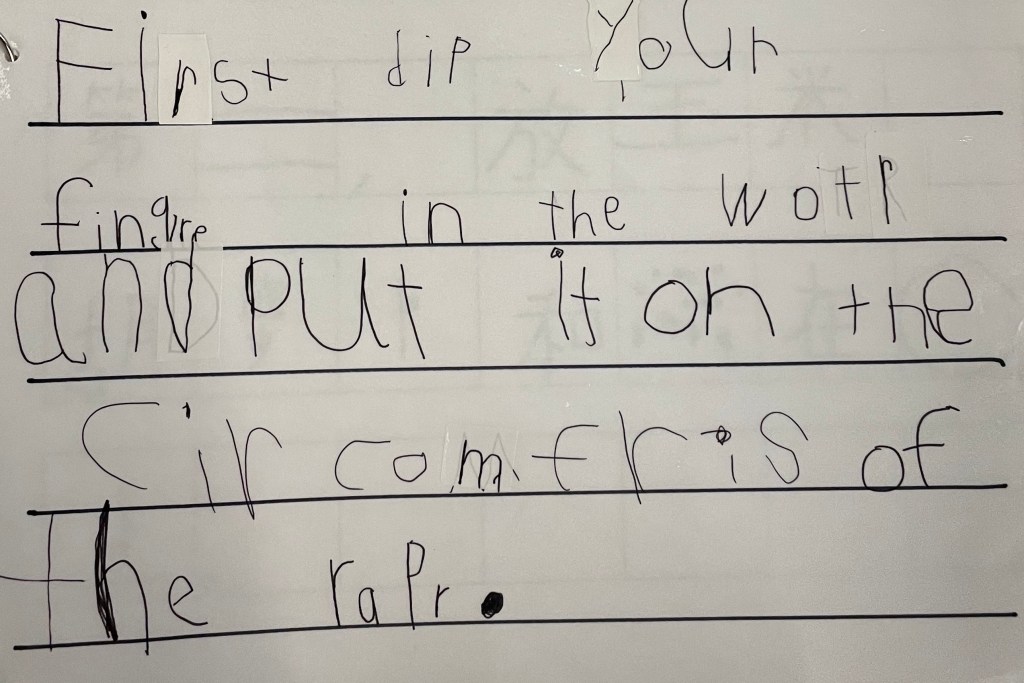 First dip Your
fingre in the wotr
and put it on the
Circomfris of
the rapr.